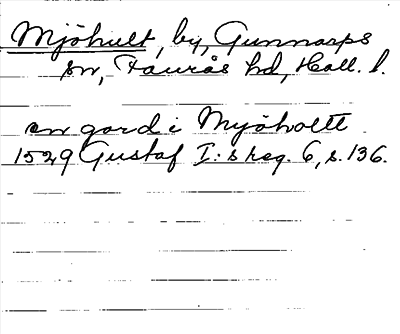 Mjöhult, by, Gunnarps
sn, Faurås hd, Hall. l.
en gard i Myöholtt
1529 Gustaf I:s reg. 6, s. 136.